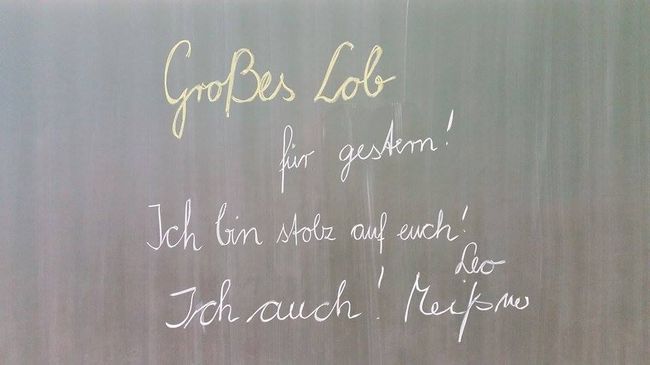 Großes Lob
für gestern!
Ich bin stolz auf euch!
Leo
Ich auch!